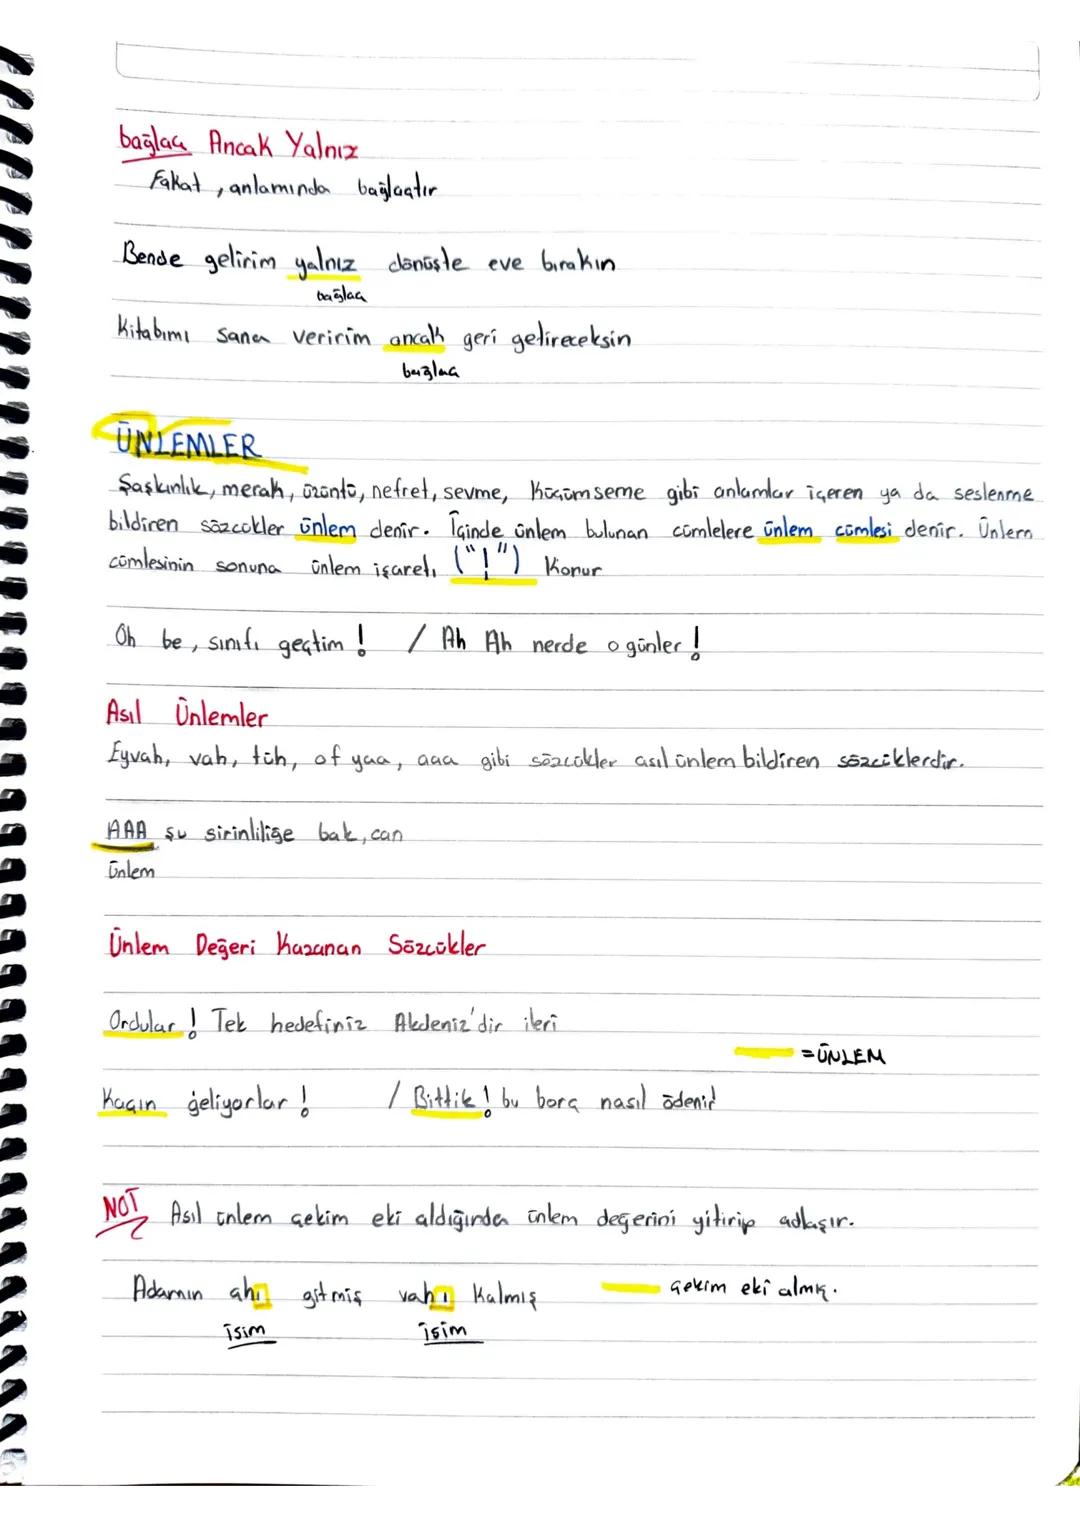 bağlaç Ancak Yalnız
Fakat, anlamında bağlaçtır
Bende gelirim yalnız dönüşte eve bırakın
bağlaç
Kitabımı sana veririm ancak geri getireceksin
bağlaç
ÜNLEMLER
Şaşkınlık, merak, üzüntü, nefret, sevme, küçümseme gibi anlamlar içeren ya da seslenme
bildiren sözcükler ünlem denir. İçinde ünlem bulunan cümlelere ünlem cümlesi denir. Ünlem
cümlesinin sonuna ünlem işareti ("!") Konur
Oh be, sınıfı geçtim! / Ah Ah nerde o günler!
Asıl Ünlemler
Eyvah, vah, tüh, of yaa, aaa gibi sözcükler asıl ünlem bildiren sözcüklerdir.
AAA şu sirinliliğe bak, can
ünlem
Ünlem Değeri Kazanan Sözcükler
Ordular! Tek hedefiniz Akdeniz'dir ileri
= ÜNLEM
Kaçın geliyorlar! / Bittik! bu borç nasıl ödenir
NOT Asıl ünlem çekim eki aldığında ünlem değerini yitirip adlaşır.
Adamın ahı gitmiş vahı Kalmış çekim eki almış.
isim isim